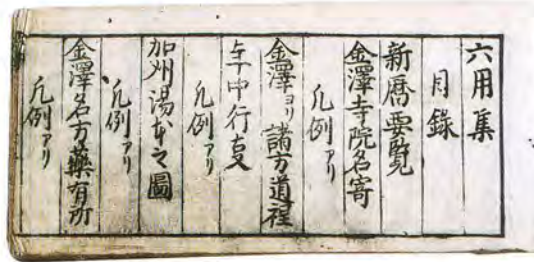 六用集
目録
新暦要覧
金澤寺院名寄
凡例アリ
金澤ヨリ諸方道程
年中行事
凡例アリ
加州湯本之圖
凡例アリ
金澤名方藥有所
凡例アリ